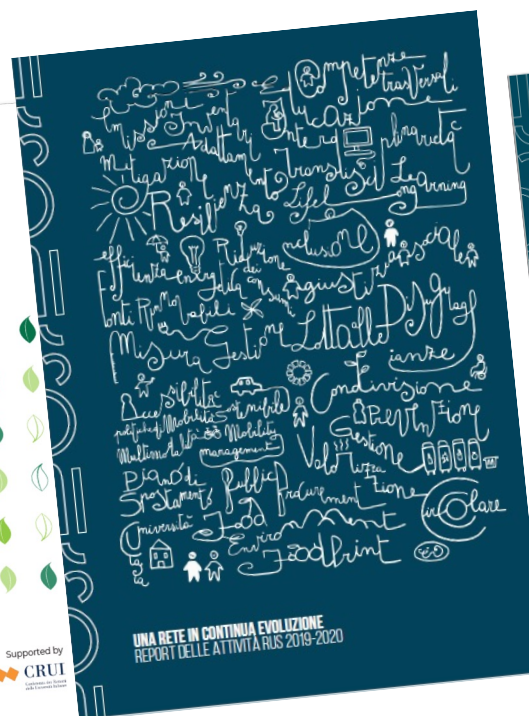 Competenze
trasversali
Emissioni Inventari Educazione
Adattamento Interdisciplinarietà
Mitigazione Transdisci
Resilienza Lifelong Learning
efficienza energetica Riduzione dei consumi inclusione
giustizia sociale
Fonti Rinnovabili
Misura Gestione Lotta alle Disuguaglianze
Accessibilità Condivisione
politiche di Mobilità sostenibile Prevenzione
Multimodalità Mobility management Gestione
Valorizzazione
Piano di Spostamenti Public Procurement
Circolare
Università Food
casa Environment
Foodprint
UNA RETE IN CONTINUA EVOLUZIONE
REPORT DELLE ATTIVITÀ RUS 2019-2020
Supported by
CRUI